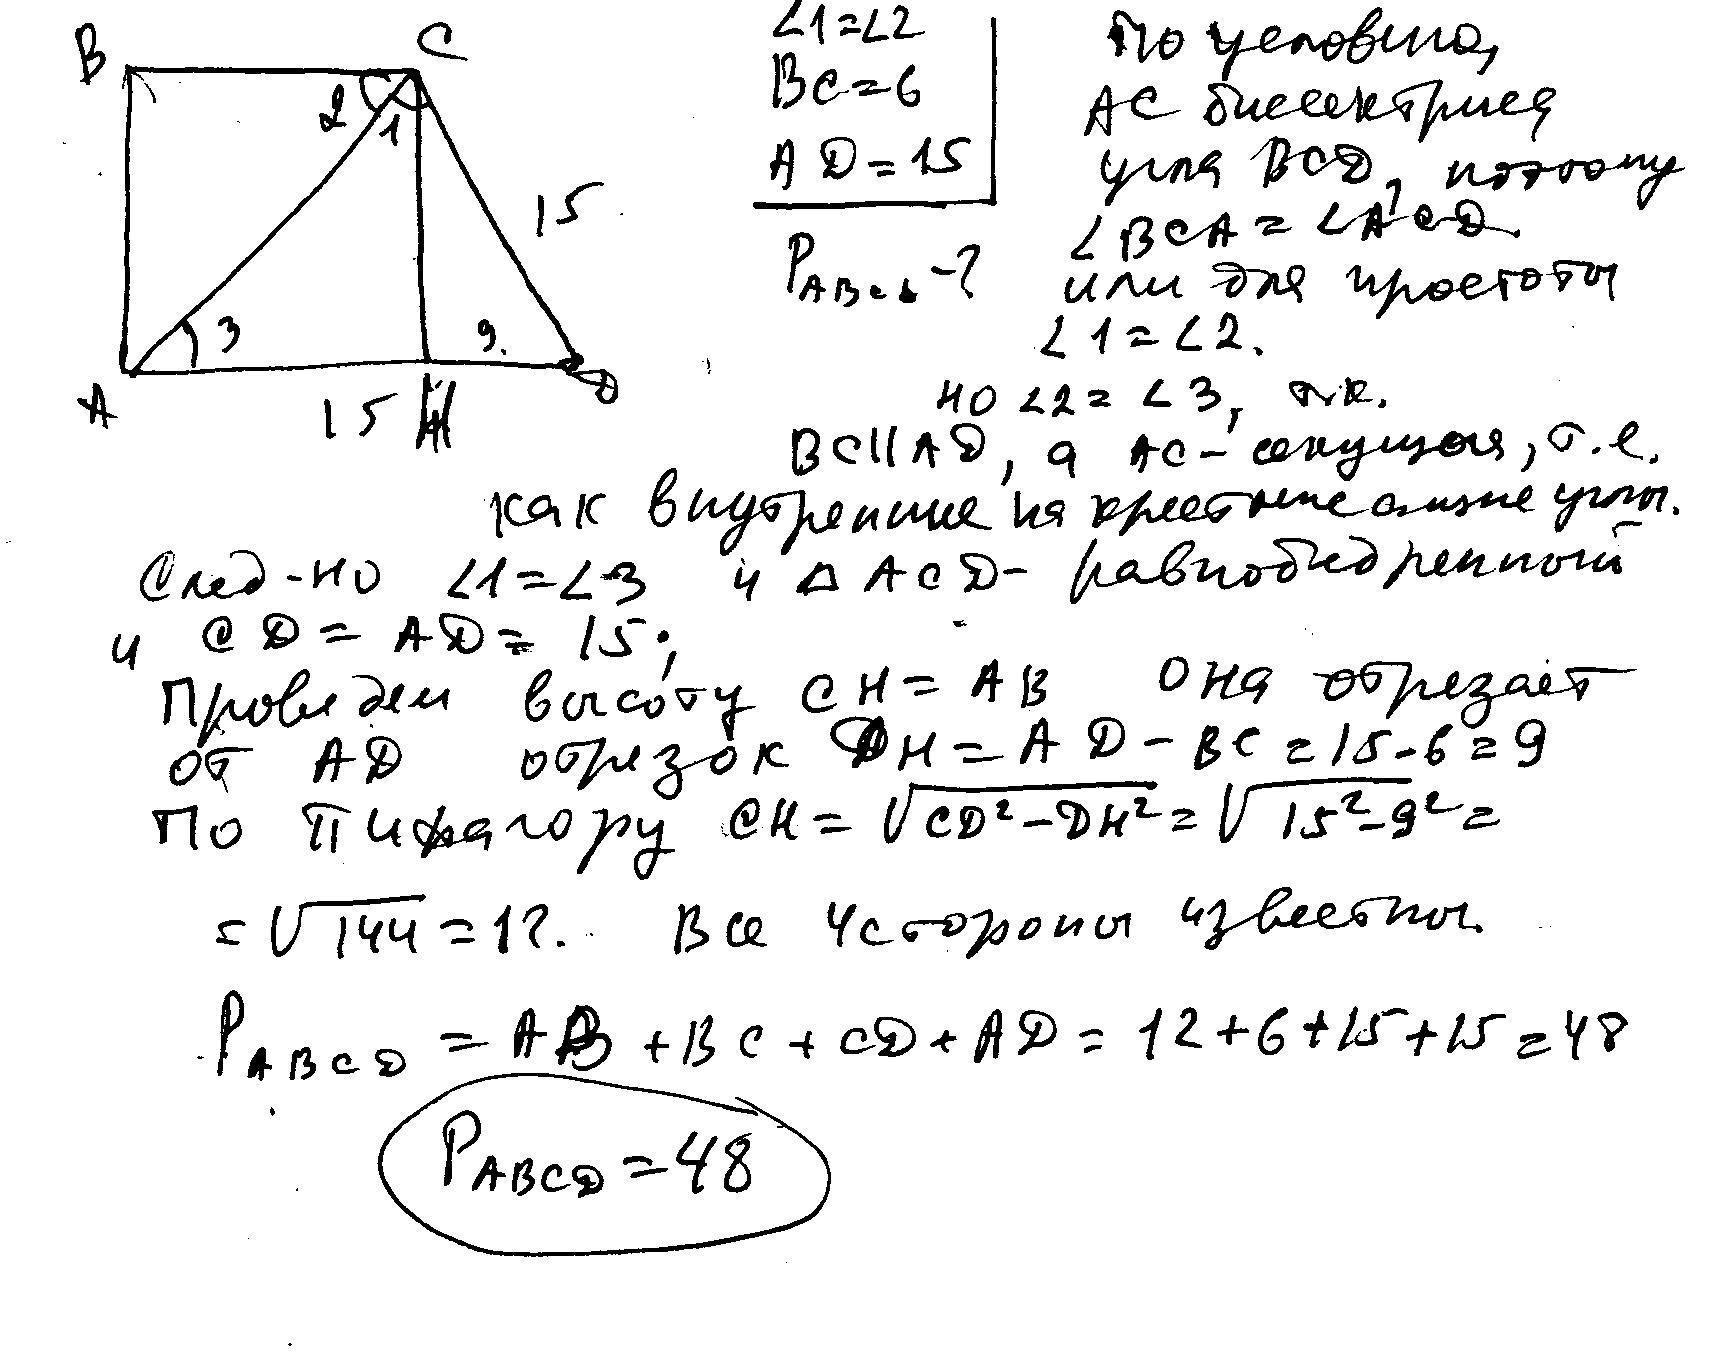 B
C
2
1
15
3
9.
A
15
H
D
∠1=∠2
BC=6
AD=15
P_ABCD-?
По условию,
AC биссектриса
угла BCD, поэтому
∠BCA=∠ACD.
или для простоты
∠1=∠2.
но ∠2=∠3, т.к.
BC||AD, а AC-секущая, т.е.
как внутренние накрест лежащие углы.
След-но ∠1=∠3 и △ACD- равнобедренный
и CD=AD=15;
Проведем высоту CH=AB Она отрезает
от AD отрезок DH=AD-BC=15-6=9
По Пифагору CH=√CD²-DH²=√15²-9²=
=√144=12. Все 4 стороны известны.
P_ABCD=AB+BC+CD+AD=12+6+15+15=48
P_ABCD=48